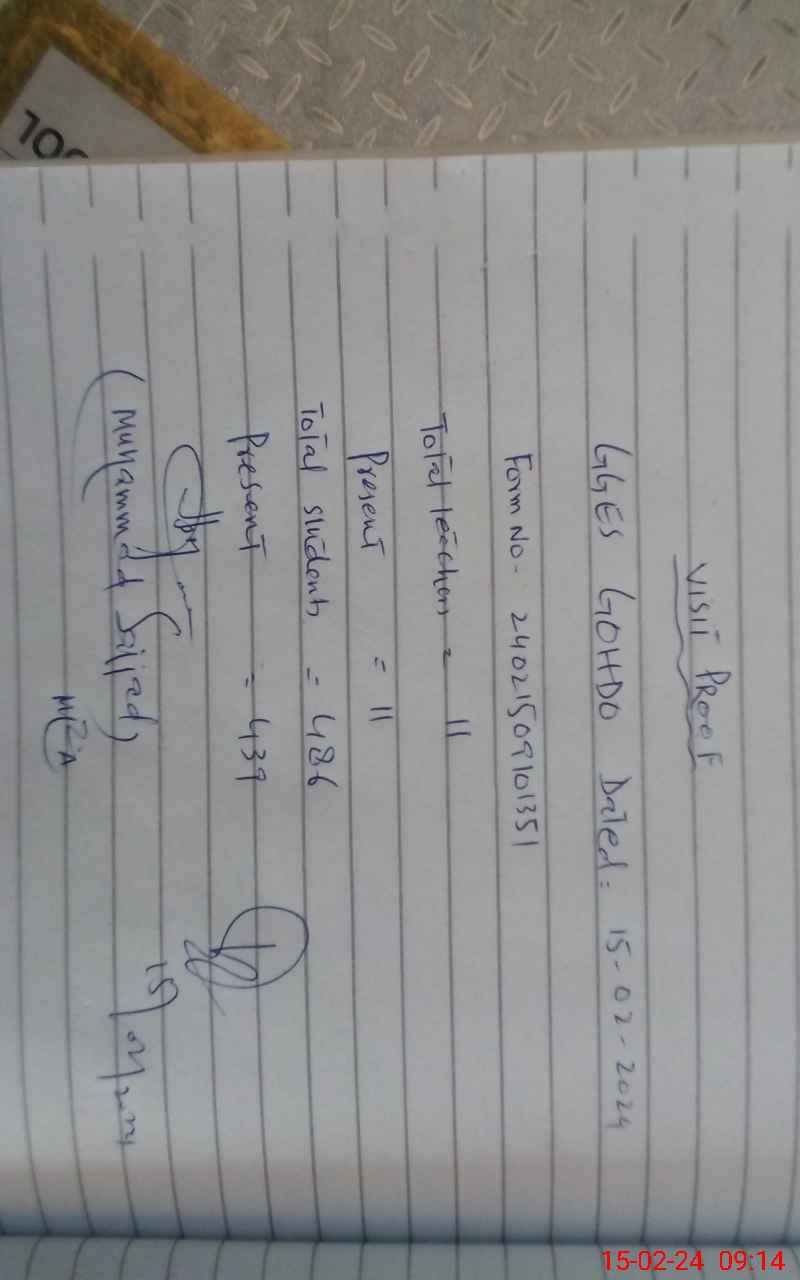 VISIT PROOF
GGES GOHDO Dated: 15-02-2024
Form No- 24021509101351
Total teachers = 11
Present = 11
Total students = 486
Present = 439
(Muhammad Sajjad)
15/02/2024
15-02-24 09:14